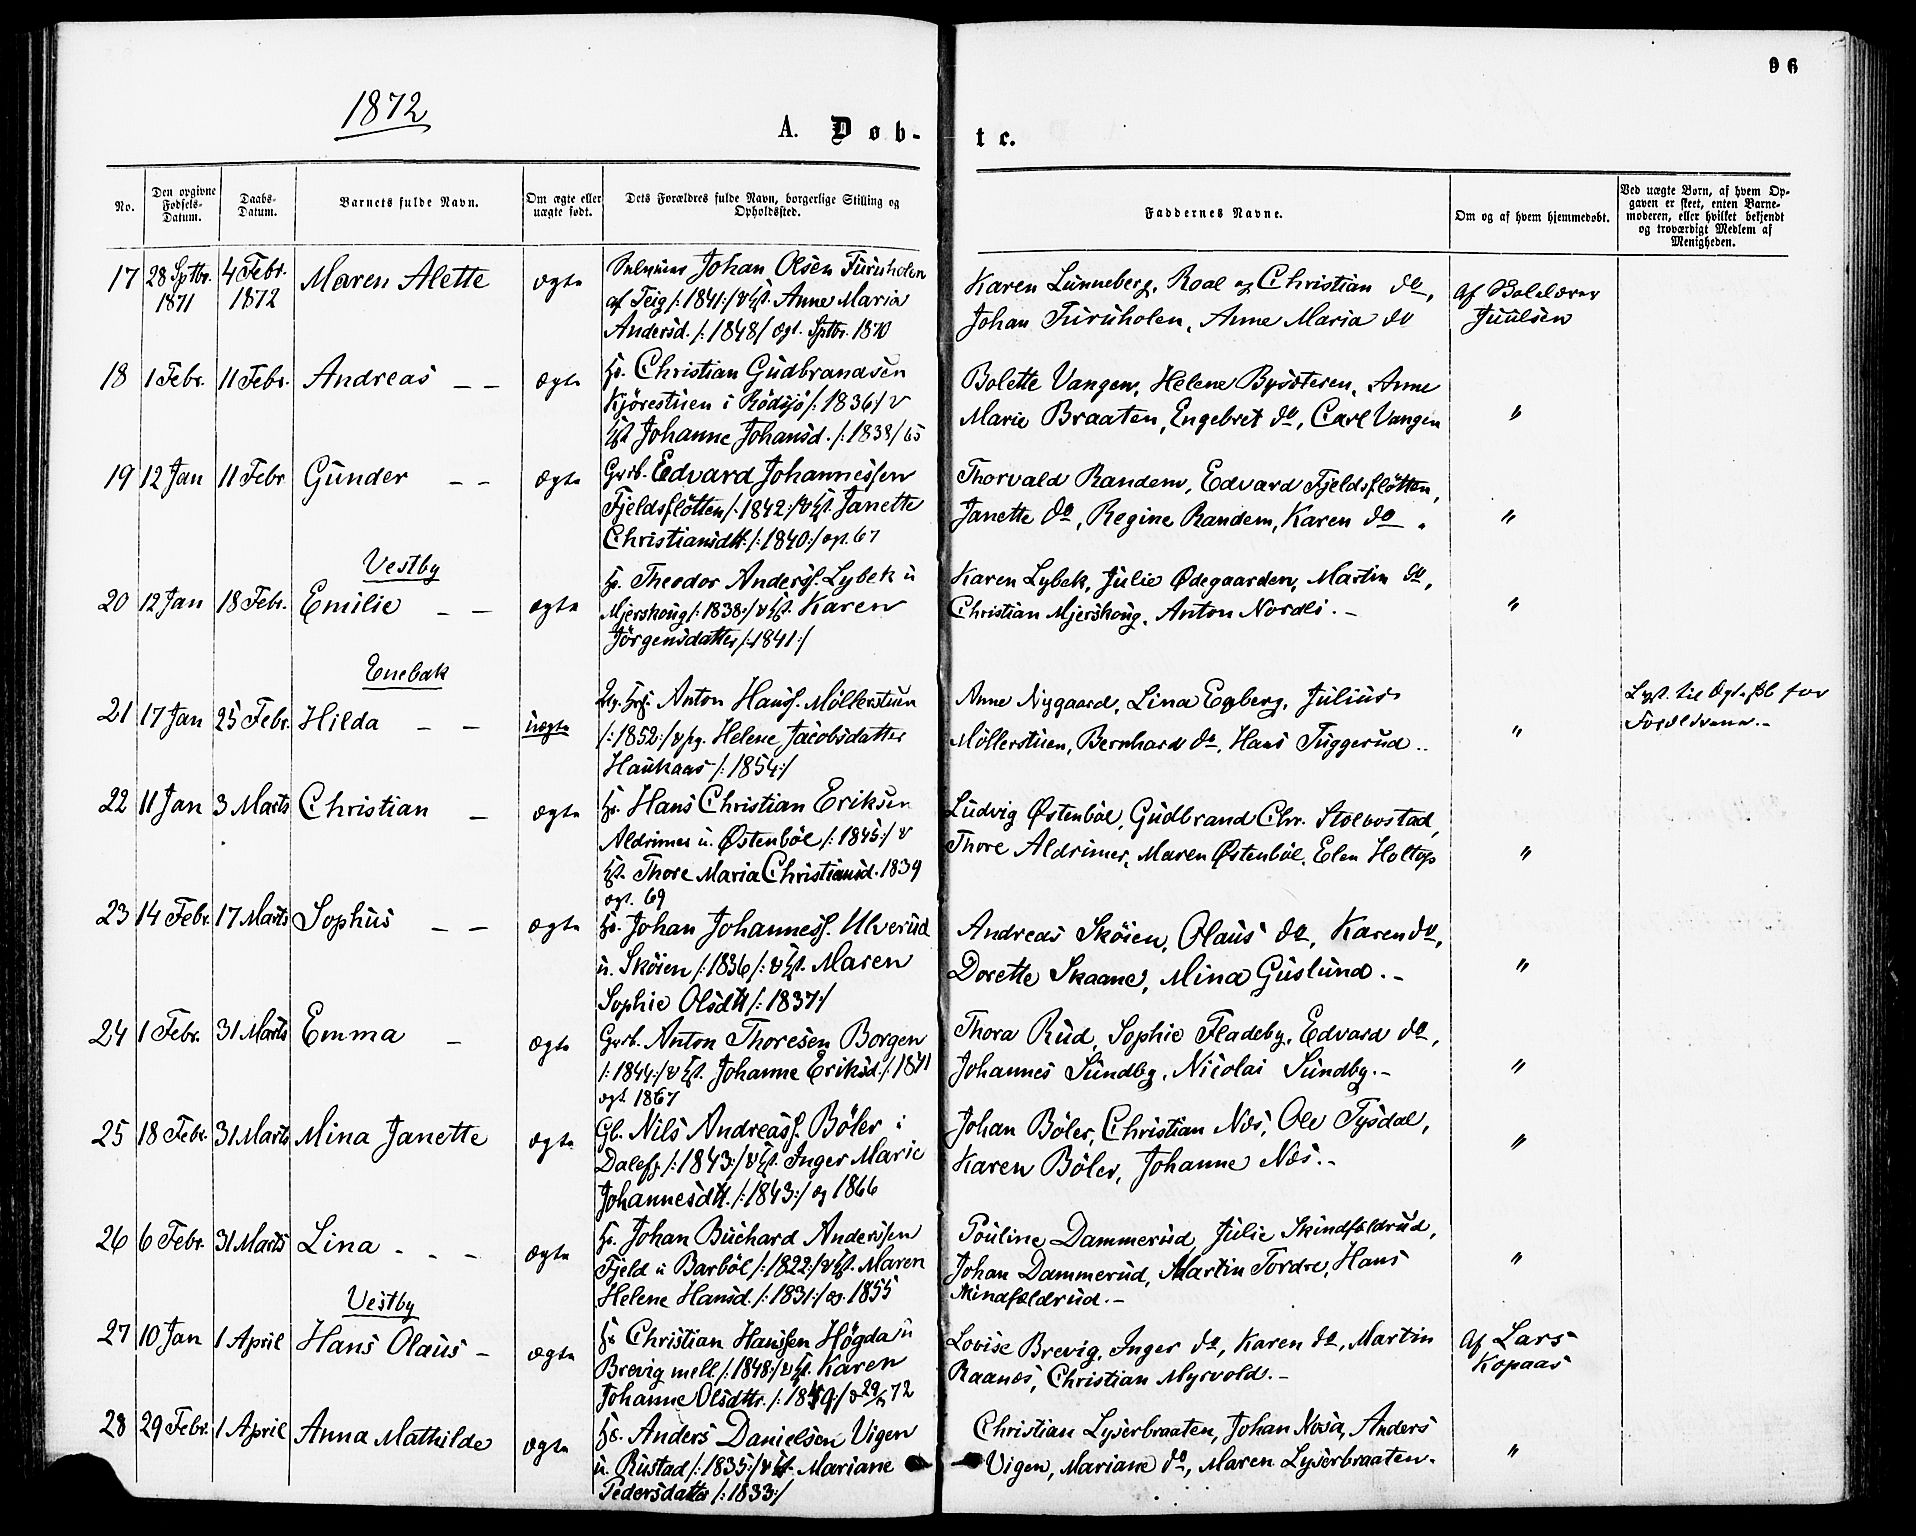 96
1872
A. Døb-
te.
No.
Den opgivne Fødsels-Datum.
Daabs-Datum.
Barnets fulde Navn.
Om ægte eller uægte født.
Dets Forældres fulde Navn, borgerlige Stilling og Opholdssted.
Faddernes Navne.
Om og af hvem hjemmedøbt.
Ved uægte Børn, af hvem Opgaven er skeet, enten Barnemoderen, eller hvilket bekjendt og troværdigt Medlem af Menigheden.
17 28 Sptbr. 1871 4 Febr. 1872 Maren Alette ægte
Johan Olsen Furuholen
af Teig /:1841:/ & Hst. Anne Maria
Andersd. /:1848/ ægt. Sptbr. 1870
Karen Lunneberg, Roal og Christian do,
Johan Furuholen, Anne Maria do
Af
Juulsen
18 1 Febr. 11 Febr. Andreas – – ægte
Hs. Christian Gudbrandsen
Kjørestuen i Rødsjø /:1836:/ &
Hst Johanne Johansd. /:1838/65
Bolette Vangen, Helene Bysæteren, Anne
Marie Braaten, Engebret do, Carl Vangen
"
19 12 Jan 11 Febr Gunder – – ægte
Grb. Edvard Johannessen
Fjeldsfløtten /:1842:/ & Hst. Janette
Christiansdtt. /:1840:/ ægt. 67
Thorvald Randem, Edvard Fjeldsfløtten,
Janette do, Regine Randem, Karen do.
"
Vestby
20 12 Jan 18 Febr. Emilie – – ægte
Hs. Theodor Anderss. Lybek u
Mjerskoug /:1838:/ & Hst. Karen
Jörgensdatter /:1841:/
Karen Lybek, Julie Ødegaarden, Martin do,
Christian Mjerskoug, Anton Nordli. –
"
Enebak
21 17 Jan 25 Febr. Hilda – – uægte
Anton Hanss. Möllerstuen
/:1852:/ & pg. Helene Jacobsdatter
Haukaas /:1854:/
Anne Nygaard, Lina Egberg, Julius
Möllerstuen, Bernhard do, Hans Tuggerud..
"
Lyst. til Ægtesk. for
Forældrene. –
22 11 Jan 3 Marts Christian – ægte
Hs. Hans Christian Eriksen
Aldrimer u. Østenböl /:1845:/ &
Hst. Thore Maria Christiansd. 1839
ægt. 69
Ludvig Østenböl, Gudbrand Chr. Stolbostad,
Thore Aldrimer, Maren Østenböl, Elen Holtop
"
23 14 Febr. 17 Marts Sophus – – ægte
Hs. Johan Johanness. Ulverud
u. Sköien /:1836/: & Hst. Maren
Sophie Olsdtt /:1837:/
Andreas Sköien, Olaus do, Karen do,
Dorette Skaane, Mina Guslund. –
"
24 1 Febr. 31 Marts Emma – ægte
Grb. Anton Thoresen Borgen
/:1844:/ & Hst. Johanne Eriksd. /:1841
ægt 1867
Thora Rud, Sophie Fladeby, Edvard do,
Johannes Sundby, Nicolai Sundby. –
"
25 18 Febr. 31 Marts Mina Janette ægte
Gb. Nils Andreass. Böler i
Dalefj /:1843:/ & Hst. Inger Marie
Johannesdtt. /:1843:/ æg 1866
Johan Böler, Christian Næs, Ole Tysdal,
Karen Böler, Johanne Næs. –
"
26 6 Febr. 31 Marts Lina – – – ægte
Hs. Johan Buchard Anderssen
Fjeld u Barböl /:1822:/ & Hst. Maren
Helene Hansd. /:1831:/ æg. 1855
Pouline Dammerud, Julie Skindfældrud,
Johan Dammerud, Martin Tordre, Hans
Skindfældrud. –
"
Vestby
27 10 Jan 1 April Hans Olaus – ægte
Hs Christian Hanssen Högda u
Brevig mell. /:1848:/ & Hst. Karen
Johanne Olsdttr. /:1849:/ 72
Lovise Brevig, Inger do, Karen do, Martin
Raanæs, Christian Myrvold. –
Af Lars
Kopaas
28 29 Febr. 1 April Anna Mathilde ægte
Hs. Anders Danielsen Vigen
u. Rustad /:1835:/ & Hst. Mariane
Pedersdatter /:1833:/
Christian Lyserbraaten, Johan Næsa, Anders
Vigen, Mariane do, Maren Lyserbraaten.
"